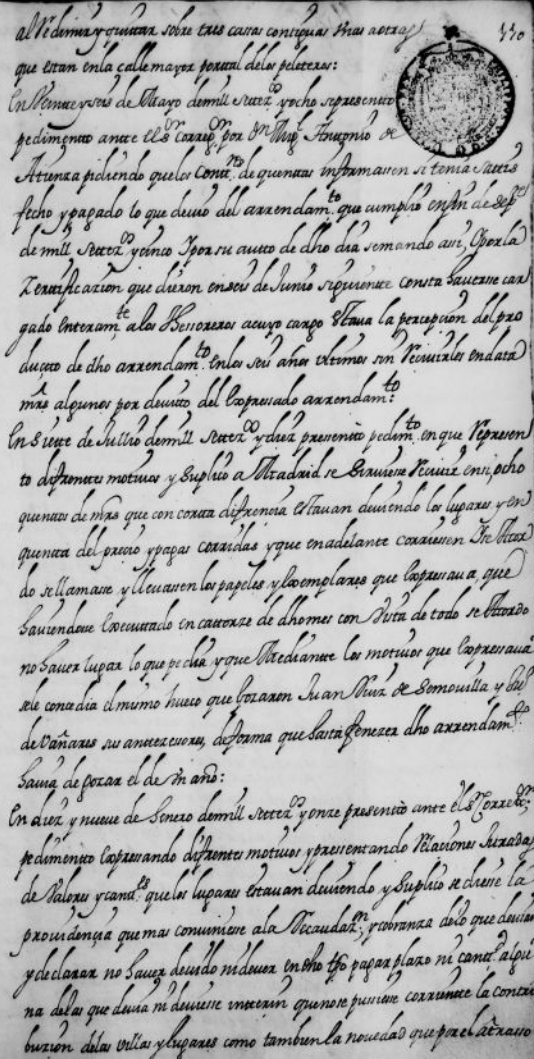 al Redimir y quittar sobre tres casas contiguas unas a otras
330
que estan en la calle mayor porttal de los peleteros:
En Veintte y seis de Mayo de mill settez.os y ocho se presentto
pedimentto antte el S.or Correg.or por Dn Mig.l Anttonio de
Atienza pidiendo que los Cont.res de quenttas informassen si tenia sattis
fecho y pagado lo que devio del arrendam.to que cumplio en fin de sep.re
de mill settez.os y cinco y por su autto de dho dia se mando assi, y por la
Zertificazion que dieron en seis de Junio siguientte constta haverse car
gado entteram.te a los thessoreros a cuyo cargo estava la percepcion del pro
ductto de dho arrendam.to en los seis años ultimos sin Recivirles en data
mrs algunos por devitto del expressado arrendam.to:
En Siette de Jullio de mill settez.os y diez pressentto pedim.to en que Represen
to difrentes motivos y suplico a Madrid se sirviese Recivir en si, ocho
quentos de mrs que con corta difrencia estavan deviendo los lugares y en
quenta del precio y pagas corridas y que en adelante corriessen y se Acor
do se llamasse y llevassen los papeles y exemplares que expressava, que
haviendose executtado en cattorze de dho mes con vista de todo se Acordo
no haver lugar lo que pedia y que Mediantte los motivos que expressava
se le concedia el mismo hueco que gozaron Juan Ruiz de Somovilla y
de Vañares sus anttezesores, de forma que hasta fenezer dho arrendam.to
havia de gozar el de un año:
En diez y nueve de Henero de mill settez.os y onze presentto ante el S.or Correg.or
pedimentto expressando difrentes motivos y pressentando Relaciones Juradas
de Valores y cant.es que los lugares estavan deviendo y suplico se diesse la
providencia que mas conviniesse a la Recaudaz.on y cobranza de lo que devian
y declarar no haver devido ni dever en dho tpo pagar plazo ni cantt.d algu
na de las que devia ni deviesse intterin que no se pussiese corrientte la contri
buzion de las villas y lugares como tambien la novedad que por el atrasso